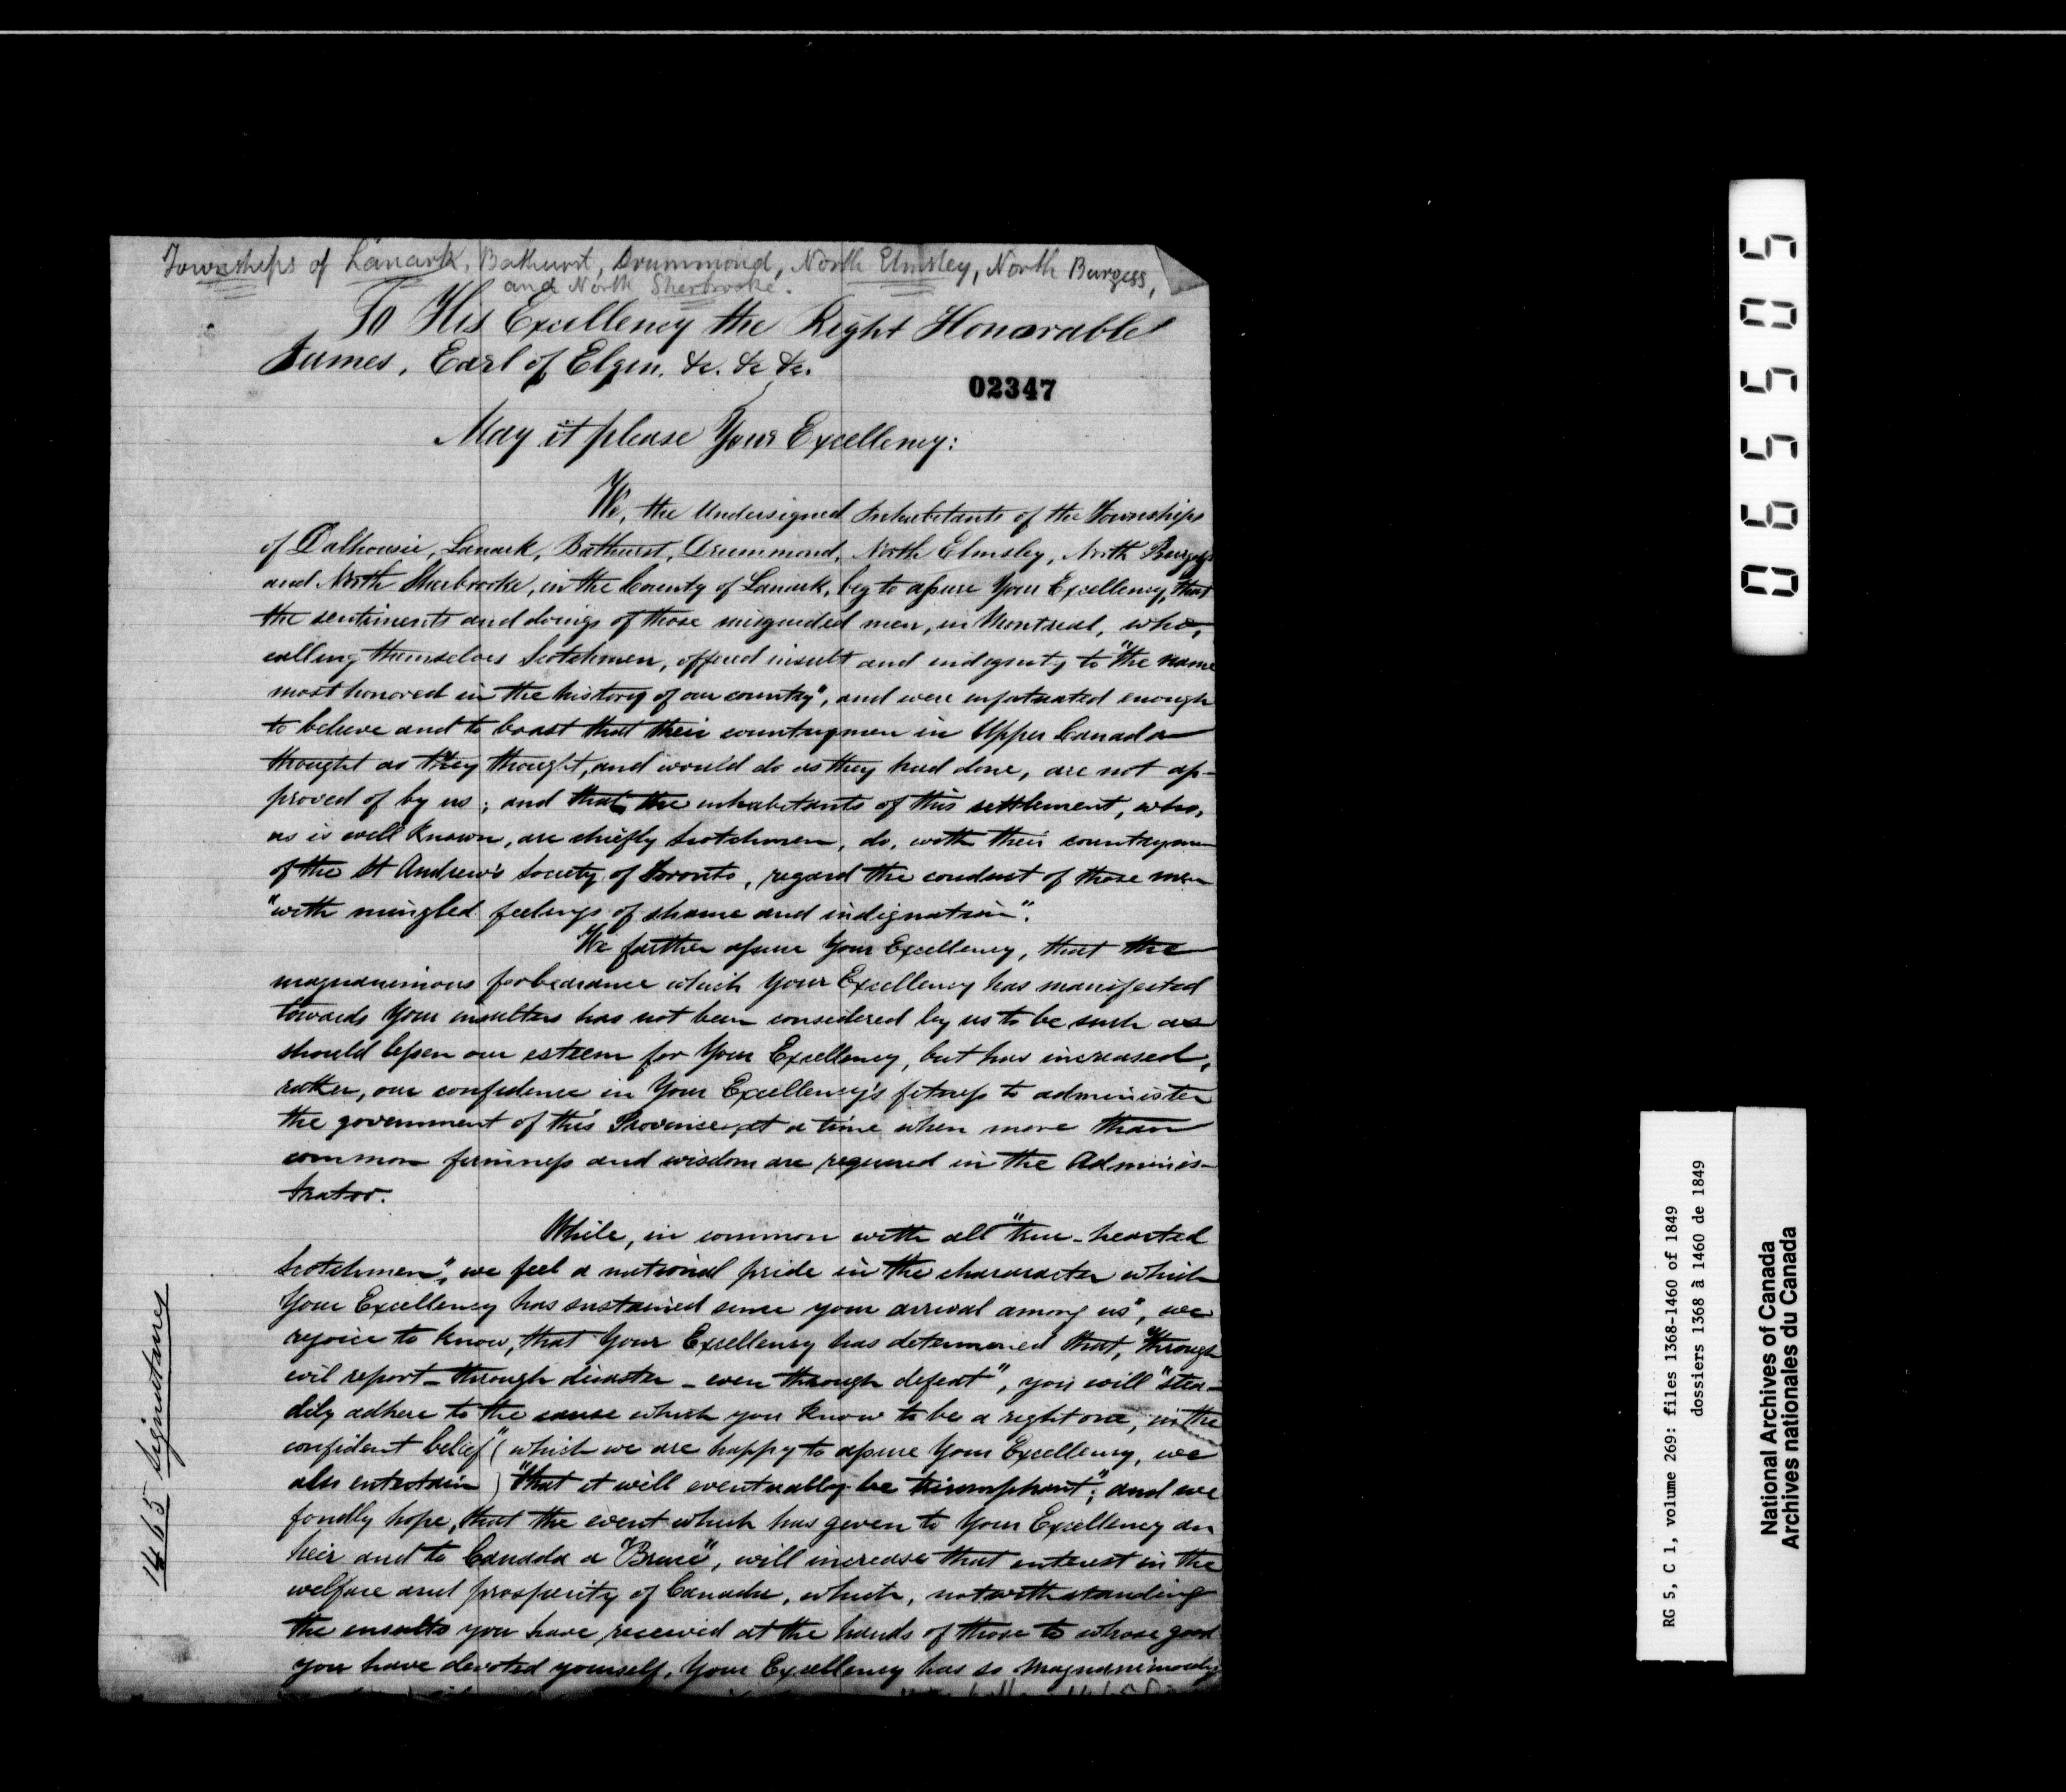 Townships of Lanark, Bathurst, Drummond, North Elmsley, North Burgess,
and North Sherbrooke.
To His Excellency the Right Honorable
James, Earl of Elgin, &c. &c &c.
02347
May it please Your Excellency:
We, the Undersigned Inhabitants of the Townships
of Dalhousie, Lanark, Bathurst, Drummond, North Elmsley, North Burgess
and North Sherbrooke, in the County of Lanark, beg to assure Your Excellency, that
the sentiments and doings of those misguided men, in Montreal, who,
calling themselves Scotchmen, offered insult and indignity to "the name
most honored in the history of our country", and were infatuated enough
to believe and to boast that their countrymen in Upper Canada
thought as they thought, and would do as they had done, are not ap-
proved of by us; and that the inhabitants of this settlement, who,
as is well known, are chiefly Scotchmen, do, with their countrymen
of the St Andrew's Society of Toronto, regard the conduct of those men
"with mingled feelings of shame and indignation".
We further assure Your Excellency, that the
magnanimous forbearance which Your Excellency has manifested
towards Your insulters has not been considered by us to be such as
should lessen our esteem for Your Excellency, but has increased,
rather, our confidence in Your Excellency's fitness to administer
the government of this Province at a time when more than
common firmness and wisdom are required in the Adminis-
trator.
While, in common with all "true-hearted
Scotchmen", we feel a national pride in the chararacter which
Your Excellency has sustained since your arrival among us", we
rejoice to know, that Your Excellency has determined that, "through
evil report - through disaster - even through defeat", you will "stea-
dily adhere to the cause which you know to be a right one, in the
confident belief" (which we are happy to assure Your Excellency, we
also entertain) "that it will eventually be triumphant"; and we
fondly hope, that the event which has given to Your Excellency an
heir and to Canada a "Bruce", will increase that interest in the
welfare and prosperity of Canada, which, notwithstanding
the insults you have received at the hands of those to whose good
you have devoted yourself, Your Excellency has so magnanimously
1465 Signatures
065505
RG 5, C 1, volume 269: files 1368-1460 of 1849
dossiers 1368 à 1460 de 1849
National Archives of Canada
Archives nationales du Canada